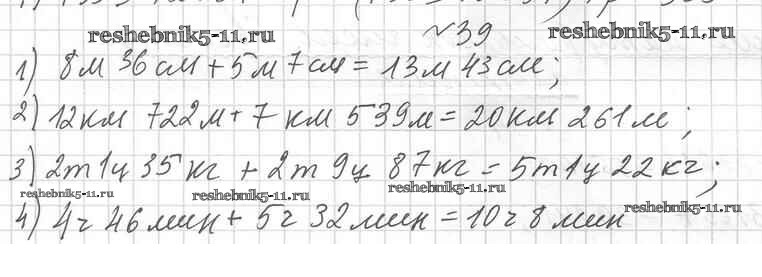 №39
reshebnik5-11.ru reshebnik5-11.ru
1) 8м 36см + 5м 7см = 13м 43см;
2) 12км 722м + 7км 539м = 20км 261м;
3) 2т 1ц 35кг + 2т 9ц 87кг = 5т 1ц 22кг;
reshebnik5-11.ru reshebnik5-11.ru reshebnik5-11.ru
4) 4ч 46мин + 5ч 32мин = 10ч 8мин
reshebnik5-11.ru